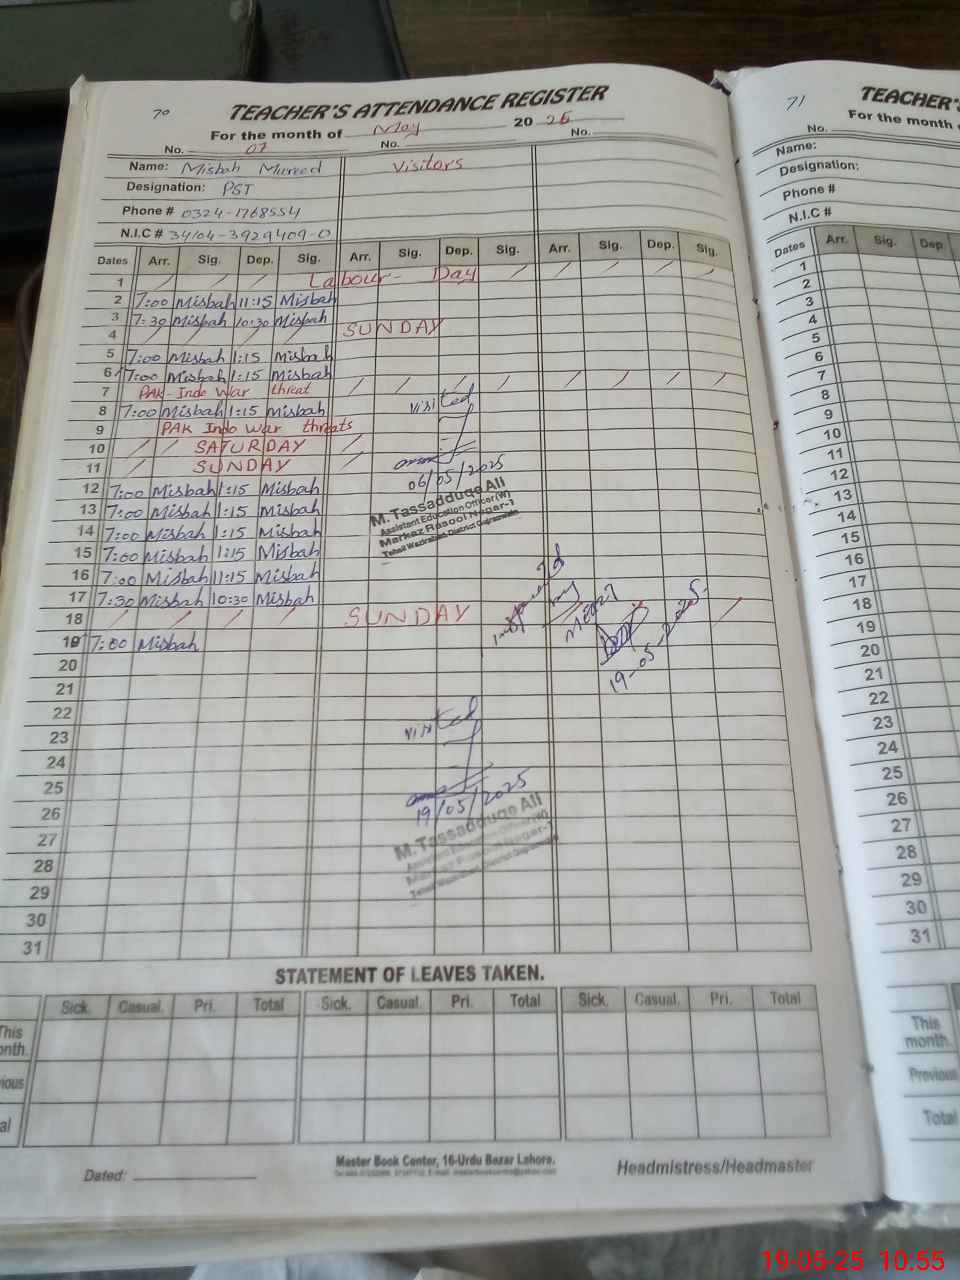 70
TEACHER'S ATTENDANCE REGISTER
For the month of May 20 26
No. 07 No. No.
Name: Misbah Mureed Visitors
Designation: PST
Phone # 0324-1768554
N.I.C # 34104-3929409-0
Dates Arr. Sig. Dep. Sig. Arr. Sig. Dep. Sig. Arr. Sig. Dep. Sig.
1 Labour- Day
2 7:00 Misbah 11:15 Misbah
3 7:30 Misbah 10:30 Misbah
4 SUNDAY
5 7:00 Misbah 1:15 Misbah
6 7:00 Misbah 1:15 Misbah
7 PAK-Indo War threat
8 7:00 Misbah 1:15 Misbah
9 PAK Indo War threats
10 SATURDAY
11 SUNDAY
12 7:00 Misbah 1:15 Misbah
13 7:00 Misbah 1:15 Misbah
14 7:00 Misbah 1:15 Misbah
15 7:00 Misbah 1:15 Misbah
16 7:00 Misbah 11:15 Misbah
17 7:30 Misbah 10:30 Misbah
18 SUNDAY
19 7:00 Misbah
20
21
22
23
24
25
26
27
28
29
30
31
visited
06/05/2025
M. Tassadduqe Ali
Assistant Education Officer (W)
Markaz Rasool Nagar-1
Tehsil Wazirabad District Gujranwala
by
19-05-2025
visited
19/05/2025
M. Tassadduqe Ali
Assistant Education Officer (W)
Markaz Rasool Nagar-1
Tehsil Wazirabad District Gujranwala
STATEMENT OF LEAVES TAKEN.
Sick. Casual. Pri. Total Sick. Casual. Pri. Total Sick. Casual. Pri. Total
This
onth.
ious
al
Dated:
Master Book Center, 16-Urdu Bazar Lahore.
Headmistress/Headmaster
71
TEACHER'S
For the month
No.
Name:
Designation:
Phone #
N.I.C #
Dates Arr. Sig. Dep
1
2
3
4
5
6
7
8
9
10
11
12
13
14
15
16
17
18
19
20
21
22
23
24
25
26
27
28
29
30
31
This
month.
Previous
Total
19-05-25 10:55